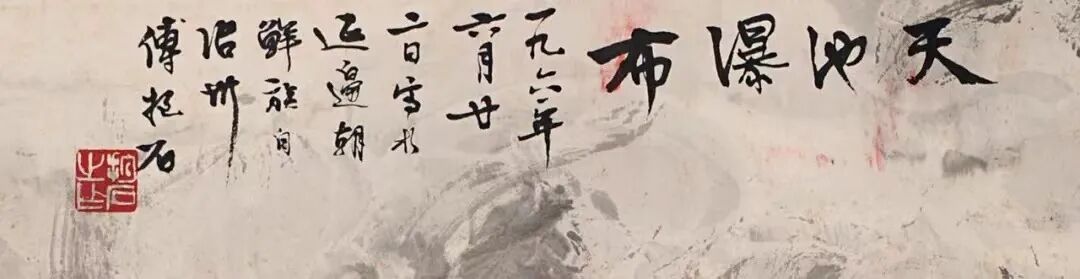 天池瀑布
一九六一年
六月廿
二日寫於
延邊朝
鮮族自
治州
傅抱石
抱石之印